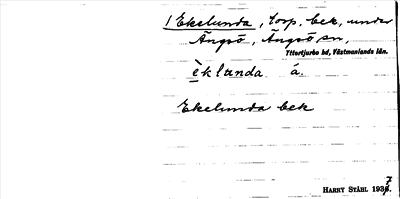 1 Ekelunda, torp, bek, under
Ängsö, Ängsö sn,
Yttertjurbo hd, Västmanlands län.
èklunda á.
Ekelunda bek
HARRY STÅHL 1937.